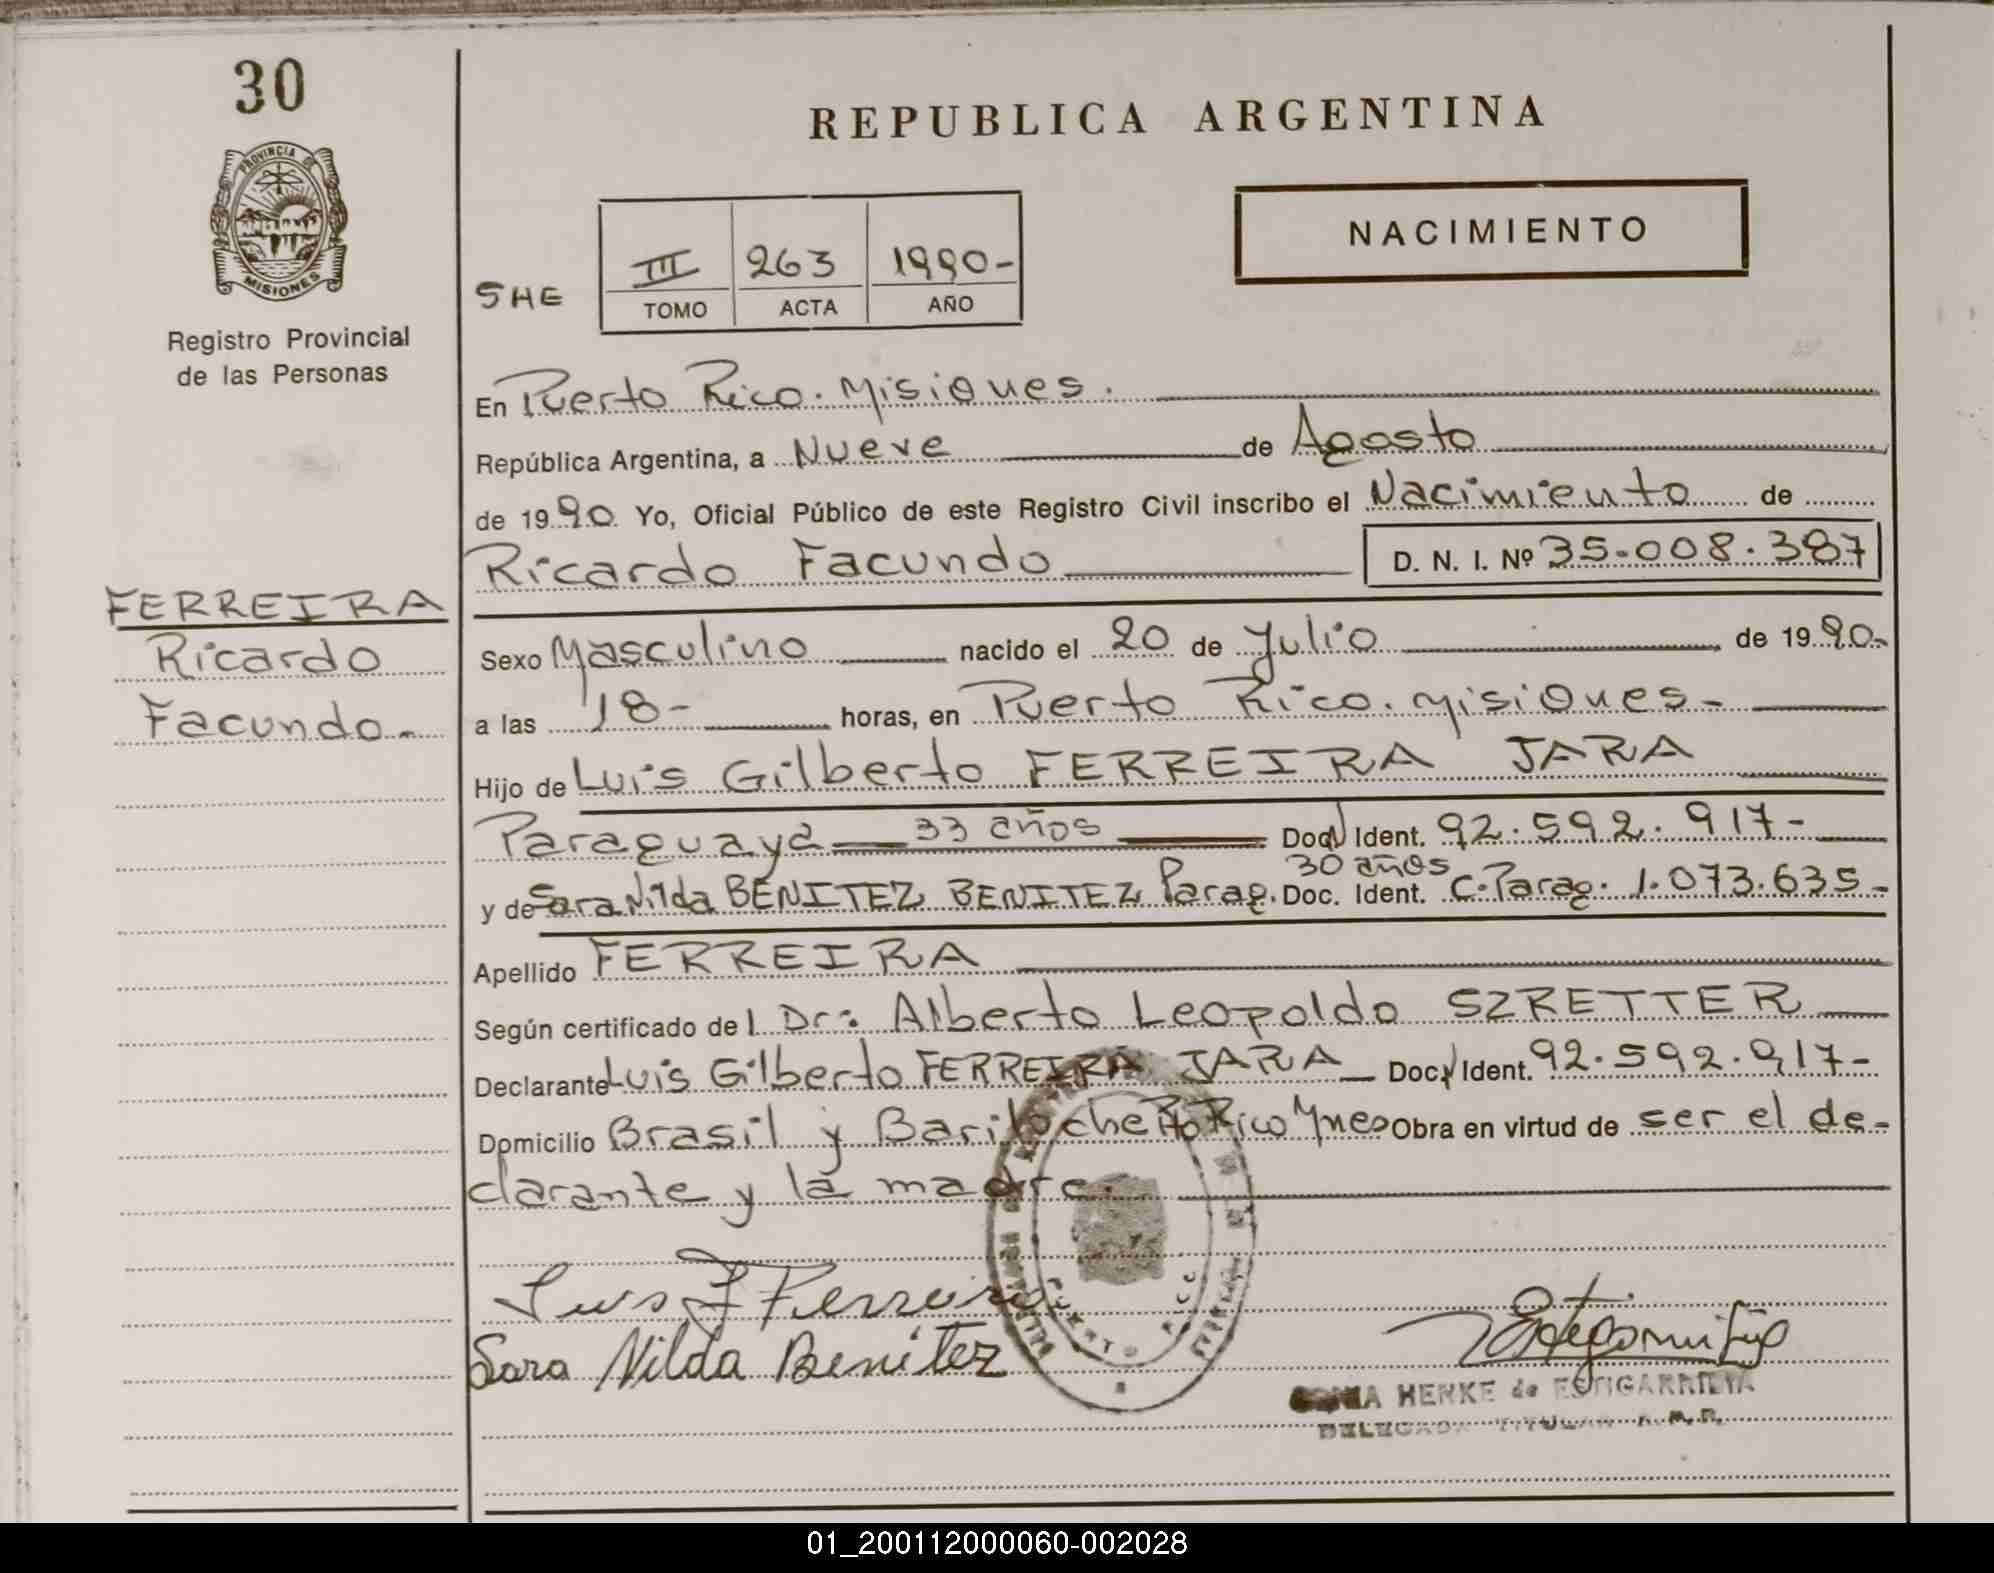 30
PROVINCIA DE
MISIONES
Registro Provincial
de las Personas
REPUBLICA ARGENTINA
NACIMIENTO
SHE
III 263 1990-
TOMO ACTA AÑO
En Puerto Rico. Misiones.
República Argentina, a Nueve de Agosto
de 1990. Yo, Oficial Público de este Registro Civil inscribo el Nacimiento de
Ricardo Facundo D. N. I. Nº 35.008.387
FERREIRA
Ricardo
Facundo.-
Sexo Masculino nacido el 20 de Julio de 1990.-
a las 18- horas, en Puerto Rico. Misiones-
Hijo de Luis Gilberto FERREIRA JARA
Paraguaya 33 años Doc. Ident. 92.592.917-
30 años
y de Sara Nilda BENITEZ BENITEZ Parag. Doc. Ident. C. Parag. 1.073.635-
Apellido FERREIRA
Según certificado del Dr: Alberto Leopoldo SZRETTER
Declarante Luis Gilberto FERREIRA JARA Doc. Ident. 92.592.917-
Domicilio Brasil y Bariloche Pto Rico Mnes Obra en virtud de ser el de-
clarante y la madre.
Luis Ferreira
Sara Nilda Benitez
HENKE de ESTIGARRIBIA
DELEGADA TITULAR
01_200112000060-002028